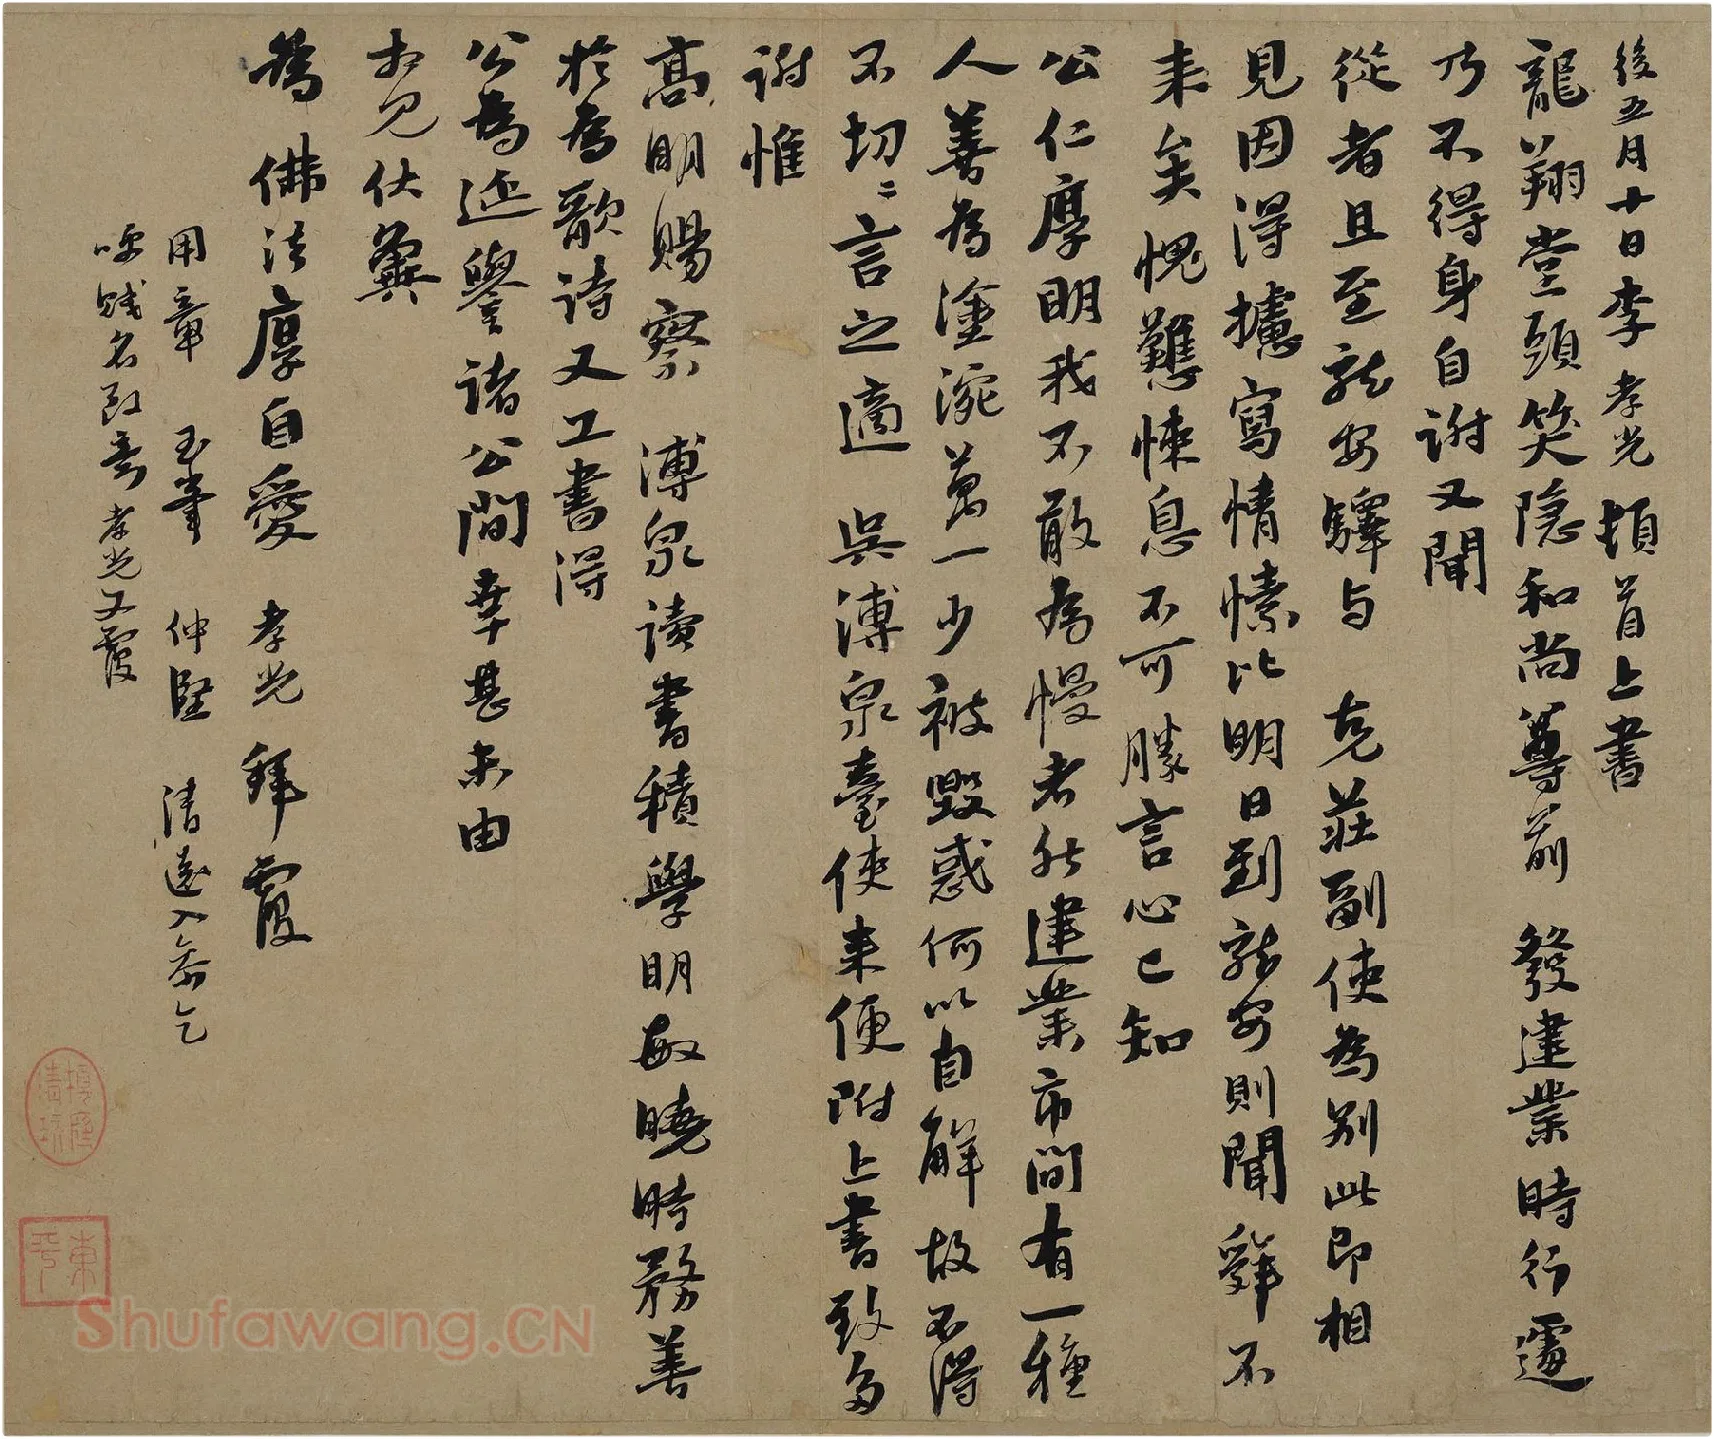 後五月十日李孝光頓首上書
龍翔堂頭笑隐和尚尊前 發建業時行遽
乃不得身自謝又聞
從者且至龍安驛与 克莊副使為别此即相
見因得攄寫情愫比明日到龍安則聞舜不
来矣愧難悚息不可勝言心已知
公仁厚明我不敢為慢者然建業市間有一種
人善為塗涴萬一少被毀惑何以自解故不得
不切〻言之適 吳溥泉臺使来便附上書致多
謝惟
高明賜察 溥泉讀書積學明敏曉時務善
於為歌詩又工書得
公為延譽諸公間幸甚未由
相見伏冀
為佛法厚自愛 孝光拜覆
用章 玉峯 仲堅 清遠入希乞
呼賤名致意孝光又覆
東平
Shufawang.CN